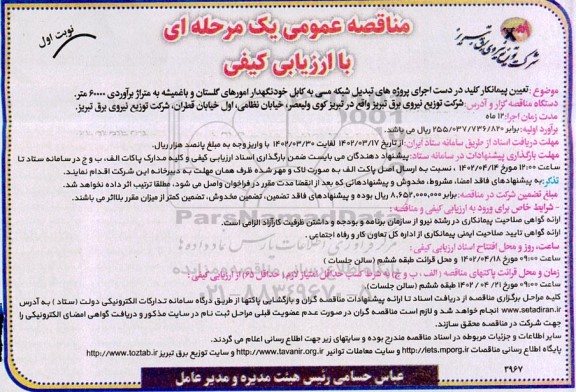 مناقصه عمومی یک مرحله ای
با ارزیابی کیفی
نوبت اول
شرکت توزیع نیروی برق تبریز
موضوع: تعیین پیمانکار کلید در دست اجرای پروژه های تبدیل شبکه مسی به کابل خودنگهدار امورهای گلستان و باغمیشه به متراژ برآوردی ۶۰۰۰۰ متر.
دستگاه مناقصه گزار و آدرس: شرکت توزیع نیروی برق تبریز واقع در تبریز کوی ولیعصر، خیابان نظامی، اول خیابان قطران، شرکت توزیع نیروی برق تبریز.
مدت زمان اجرا: ۱۲ ماه
برآورد اولیه: برابر ۲۵۵/۰۳۷/۷۳۶/۸۲۰ ریال می باشد.
مهلت دریافت اسناد از طریق سامانه ستاد ایران: از تاریخ ۱۴۰۲/۰۳/۱۷ لغایت ۱۴۰۲/۰۳/۲۰ با واریز وجه به مبلغ پانصد هزار ریال.
مهلت بارگذاری پیشنهادات در سامانه ستاد: پیشنهاد دهندگان می بایست ضمن بارگذاری اسناد ارزیابی کیفی و کلیه مدارک پاکات الف، ب و ج در سامانه ستاد تا
ساعت ۱۲:۰۰ مورخ ۱۴۰۲/۰۴/۱۴ ، نسبت به ارسال اصل پاکت الف به صورت لاک و مهر شده ظرف همان مهلت به دبیرخانه این شرکت اقدام نمایند.
تذکر: به پیشنهادهای فاقد امضا، مشروط، مخدوش و پیشنهادهائی که بعد از انقضا مدت مقرر در فراخوان واصل می شود، مطلقا ترتیب اثر داده نخواهد شد.
مبلغ تضمین شرکت در مناقصه: برابر ۸.۶۵۲.۰۰۰.۰۰۰ ریال می باشد و به پیشنهادهای فاقد تضمین، تضمین مخدوش، تضمین کمتر از میزان مقرر بلااثر می باشند.
- شرایط خاص برای ورود به ارزیابی کیفی و مناقصه :
ارائه گواهی صلاحیت پیمانکاری در رشته نیرو از سازمان برنامه و بودجه و داشتن ظرفیت کارآزاد الزامی است.
ارائه گواهی تایید صلاحیت ایمنی پیمانکاری از اداره کل تعاون کار و رفاه اجتماعی .
ساعت، روز و محل افتتاح اسناد ارزیابی کیفی :
ساعت ۰۹:۰۰ مورخ ۱۴۰۲/۰۴/۱۸ و محل قرائت طبقه ششم (سالن جلسات)
زمان و محل قرائت پاکتهای مناقصه ( الف ، ب و ج) به شرط کسب حداقل امتیاز لازم( حداقل ۶۵) از ارزیابی کیفی:
ساعت ۰۹:۰۰ مورخ ۱۴۰۲/۰۴/۲۱ و محل قرائت طبقه ششم (سالن جلسات).
کلیه مراحل برگزاری مناقصه از دریافت اسناد تا ارائه پیشنهادات مناقصه گران و بازگشایی پاکتها از طریق درگاه سامانه تدارکات الکترونیکی دولت (ستاد ) به آدرس
www.setadiran.ir انجام خواهد شد و لازم است مناقصه گران در صورت عدم عضویت قبلی مراحل ثبت نام در سایت مذکور و دریافت گواهی امضای الکترونیکی را
جهت شرکت در مناقصه محقق سازند.
سایر اطلاعات و جزئیات مربوطه در اسناد مناقصه مندرج بوده و سایتهای زیر جهت اطلاع رسانی اعلام می گردند.
پایگاه اطلاع رسانی مناقصات http://iets.mporg.ir و سایت معاملات توانیر http://www.tavanir.org.ir و سایت توزیع برق تبریز http://www.toztab.ir
۲۹۶۷
عباس حسامی رئیس هیئت مدیره و مدیر عامل